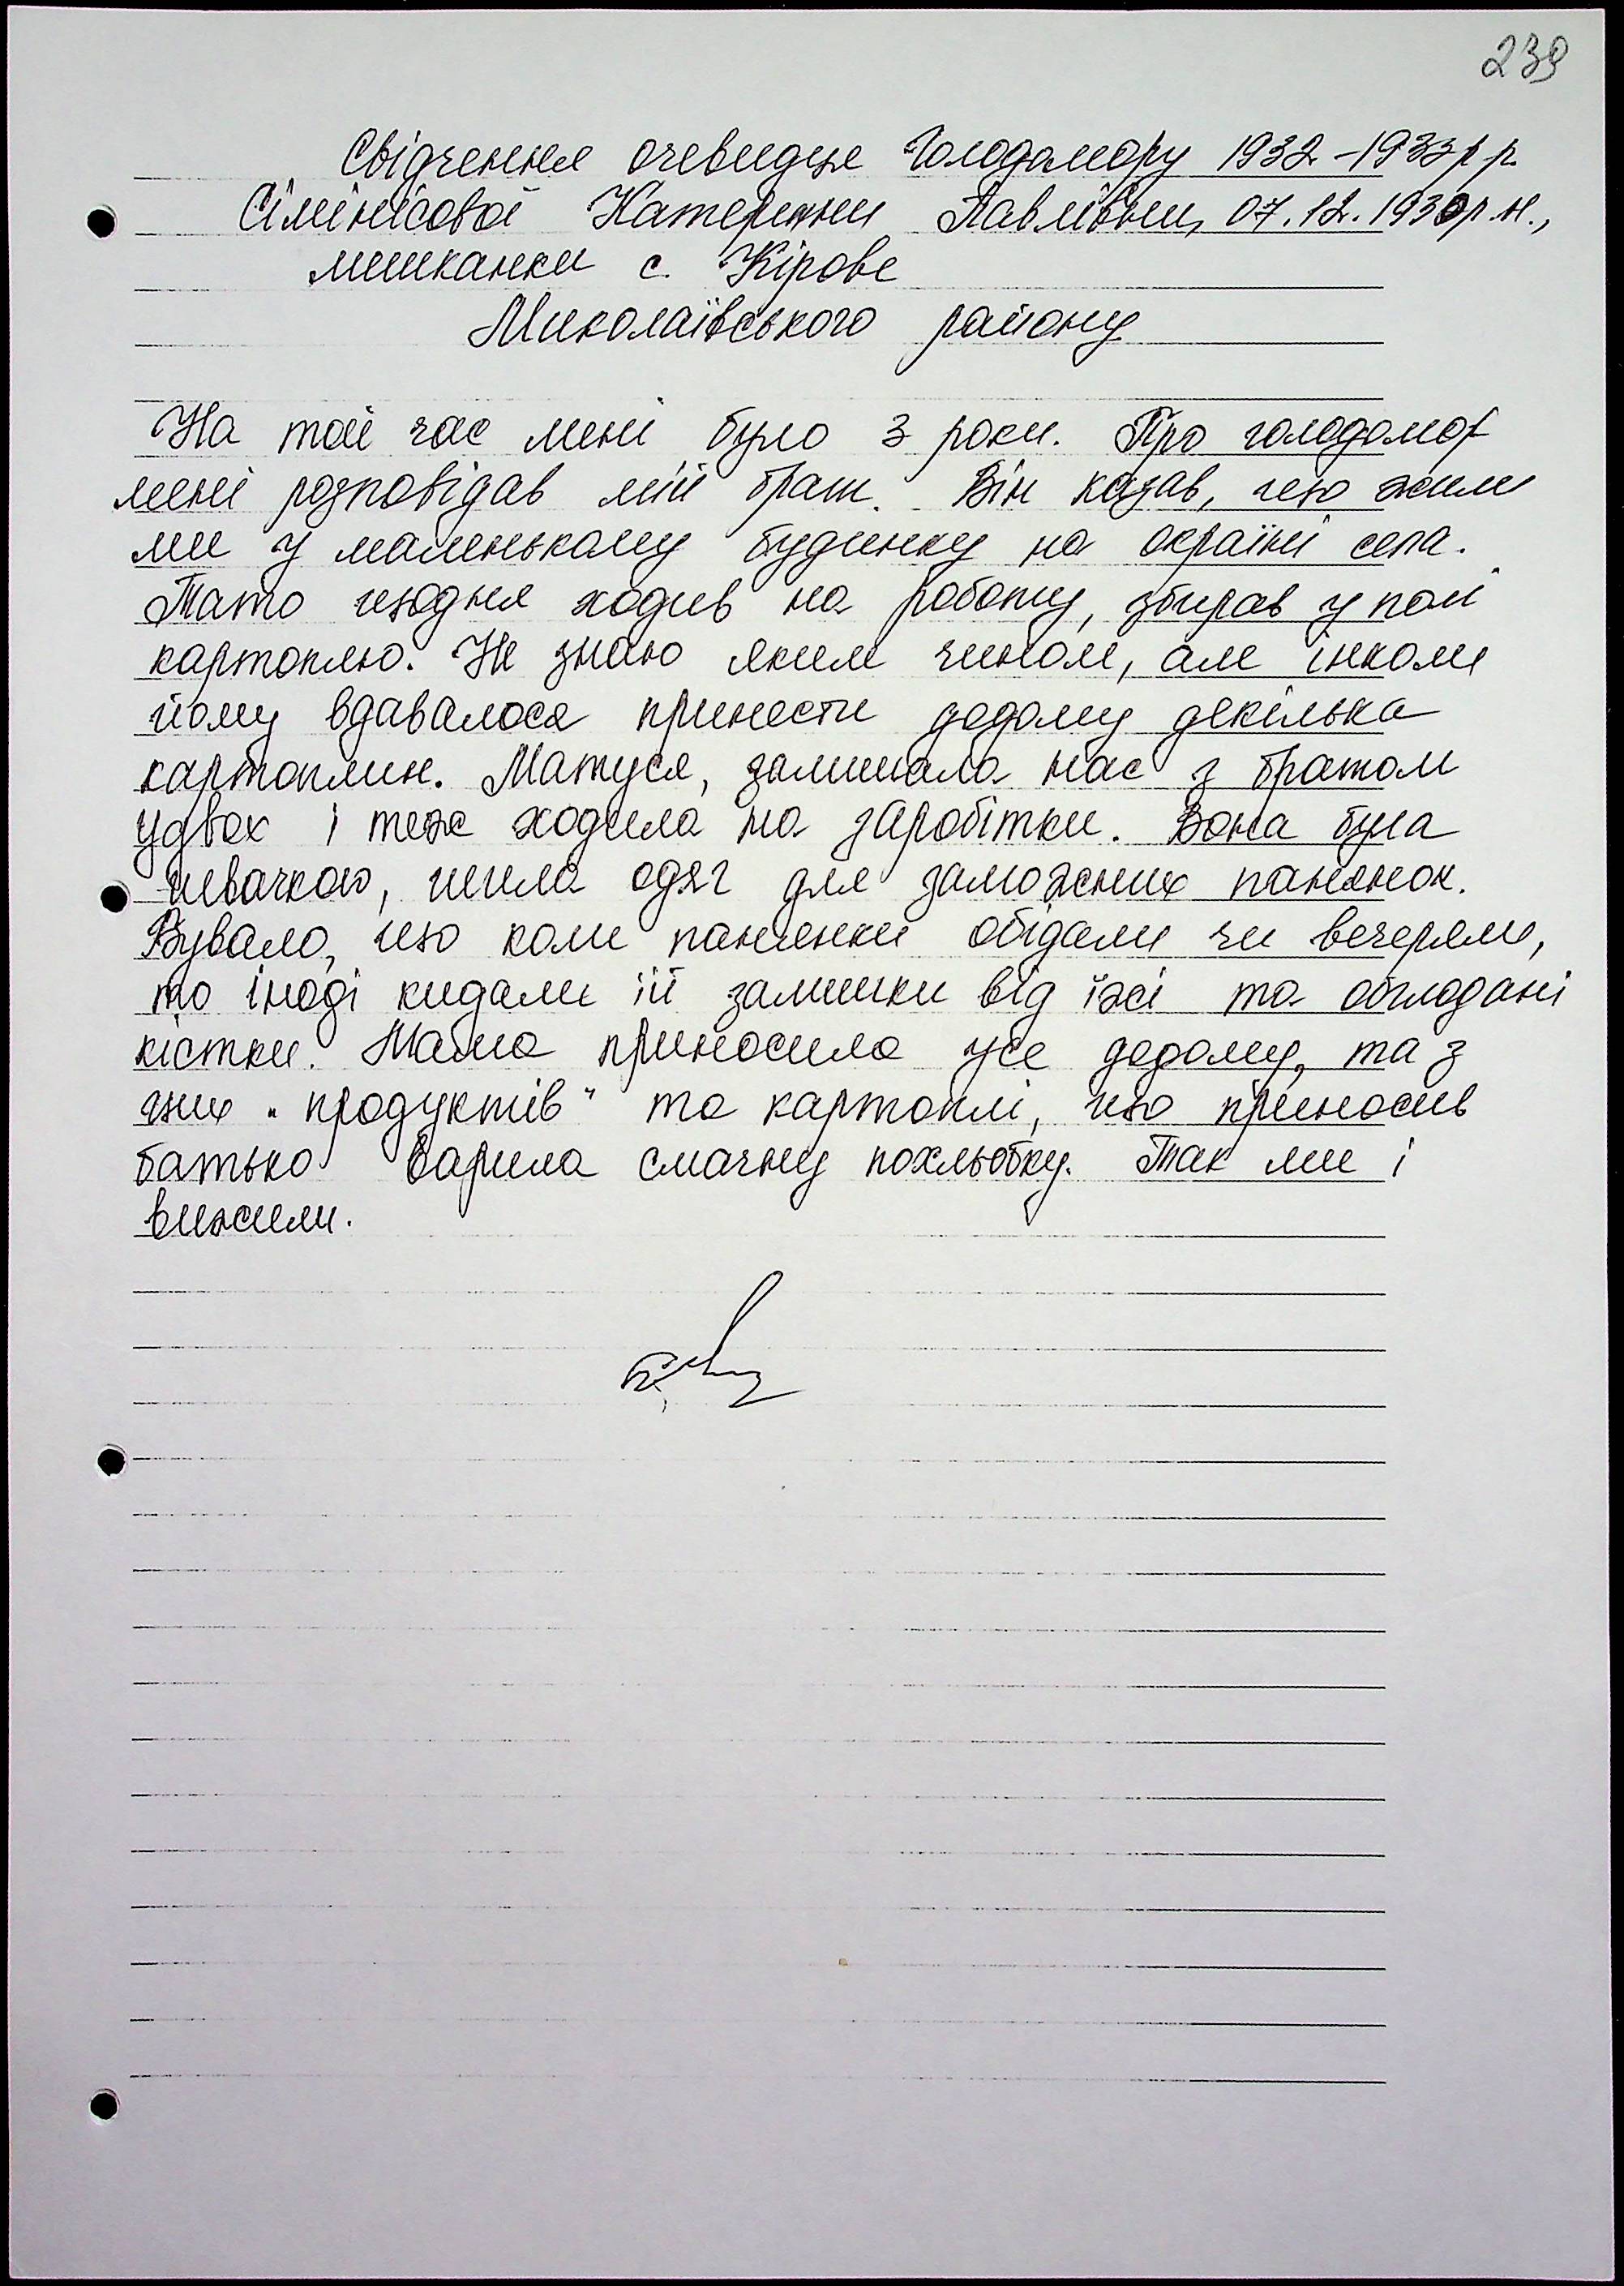 239
Свідчення очевидця Голодомору 1932-1933рр
Сімінісової Катерини Павлівни, 07.12.1930р.н.,
мешканки с. Кірове
Миколаївського району
На той час мені було 3 роки. Про голодомор
мені розповідав мій брат. Він казав, що жили
ми у маленькому будинку на окраїні села.
Тато щодня ходив на роботу, збирав у полі
картоплю. Не знаю яким чином, але інколи
йому вдавалося принести додому декілька
картоплин. Матуся, залишала нас з братом
удвох і теж ходила на заробітки. Вона була
швачкою, шила одяг для заможних панянок.
Бувало, що коли панянки обідали чи вечеряли,
то іноді кидали їй залишки від їжі та обглодані
кістки. Мама приносила усе додому, та з
цих "продуктів" та картоплі, що приносив
батько варила смачну похльобку. Так ми і
вижили.